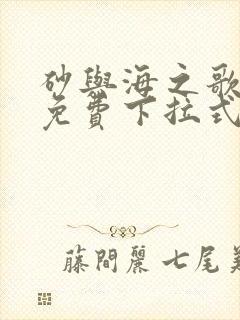 砂與海之歌
免費下拉式
藤間麗 七尾美